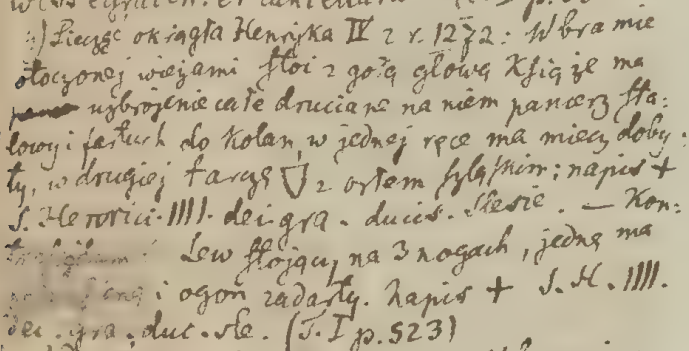 4) Pieczęć okrągła Henryka IV z r. 1272: W bramie
otoczonej wieżami stoi z gołą głową Książe ma
uzbrojenie całe druciane na niem pancerz sta:
lowy i fartuch do kolan, w jednej ręce ma miecz doby:
ty, w drugiej tarczę z orłem szląskim; napis +
S. Henrici. IIII. dei. gra. ducis. Slesie. — Kon:
Lew stojący na 3 nogach, jedną ma
i ogon zadarty. Napis + S. H. IIII.
dei. gra. duc. sle. (T. I p. 523)